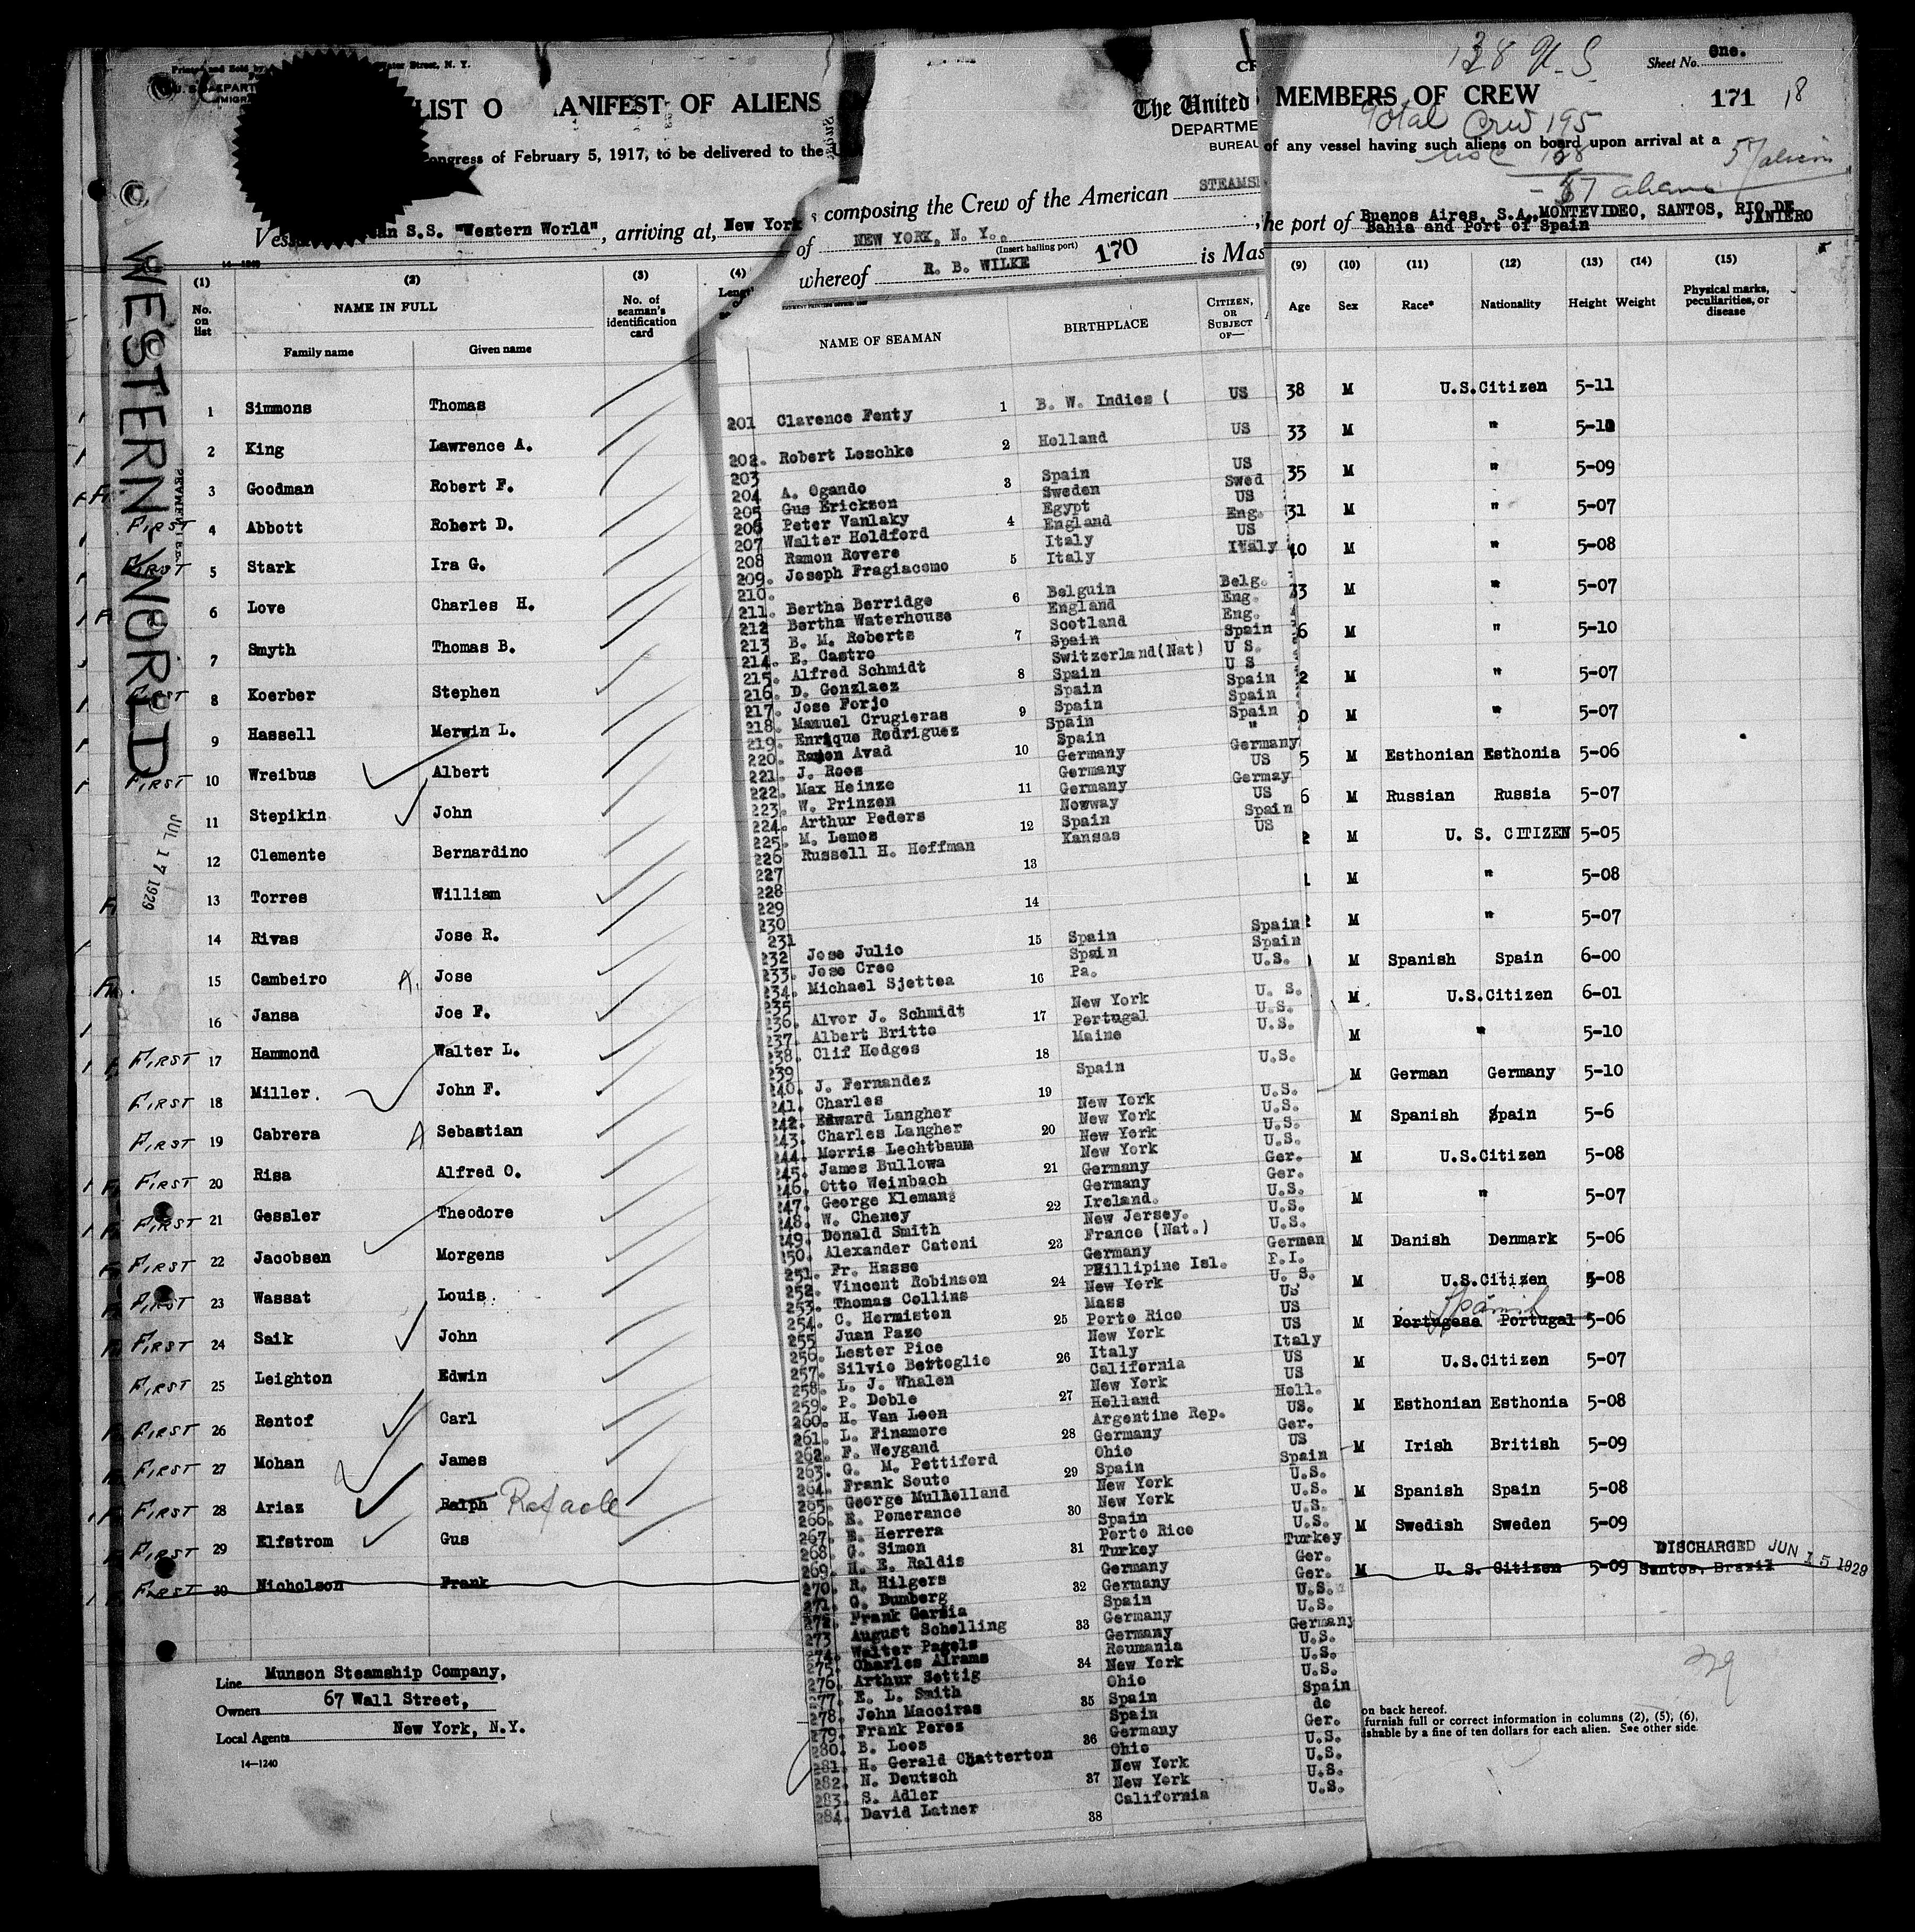 138 U.S.
Sheet No. One.
171 18
LIST O ANIFEST OF ALIENS
The United
MEMBERS OF CREW
Total Crew 195
DEPARTME
BUREAU
ongress of February 5, 1917, to be delivered to the
of any vessel having such aliens on board upon arrival at a
57 aliens
composing the Crew of the American STEAMSH
an S.S. "Western World", arriving at, New York
he port of Buenos Aires, S.A., MONTEVIDEO, SANTOS, RIO DE JANIERO
Bahia and Port of Spain
of NEW YORK, N. Y.
(Insert hailing port)
whereof R. B. WILKE 170 is Mas
WESTERN WORLD
JUL 17 1929
(1) (2) (3) (4)
No. on list NAME IN FULL No. of seaman's identification card
Family name Given name
1 Simmons Thomas
2 King Lawrence A.
3 Goodman Robert F.
FIRST 4 Abbott Robert D.
FIRST 5 Stark Ira G.
6 Love Charles H.
7 Smyth Thomas B.
FIRST 8 Koerber Stephen
9 Hassell Merwin L.
FIRST 10 Wreibus Albert
11 Stepikin John
12 Clemente Bernardino
13 Torres William
14 Rivas Jose R.
15 Cambeiro A. Jose
16 Jansa Joe F.
FIRST 17 Hammond Walter L.
FIRST 18 Miller. John F.
FIRST 19 Cabrera A Sebastian
FIRST 20 Risa Alfred O.
FIRST 21 Gessler Theodore
FIRST 22 Jacobsen Morgens
FIRST 23 Wassat Louis
FIRST 24 Saik John
FIRST 25 Leighton Edwin
FIRST 26 Rentof Carl
FIRST 27 Mohan James
FIRST 28 Ariaz Ralph Rafaele
FIRST 29 Elfstrom Gus
FIRST 30 Nicholson Frank
Line Munson Steamship Company,
Owners 67 Wall Street,
Local Agents New York, N.Y.
14—1240
NAME OF SEAMAN BIRTHPLACE CITIZEN, OR SUBJECT OF—
201 Clarence Fenty 1 B. W. Indies ( US
202. Robert Leschke 2 Holland US
203
204 A. Ogando 3 Spain US
205 Gus Erickson Sweden Swed
206 Peter Vanlaky 4 Egypt US
207 Walter Holdford England Eng.
208 Ramon Rovere Italy US
209. Joseph Fragiacomo 5 Italy Italy
210.
211. Bertha Berridge 6 Belguin Belg.
212 Bertha Waterhouse England Eng.
213 B. M. Roberts 7 Scotland Eng.
214. E. Castro Spain Spain
215. Alfred Schmidt Switzerland(Nat) U S.
216. D. Gonzlaez 8 Spain U S
217. Jose Forjo Spain Spain
218. Manuel Crugieras 9 Spain Spain
219. Enrique Rodriguez Spain Spain
220. Ramon Avad 10 Spain "
221. J. Roos Germany Germany
222. Max Heinze 11 Germany US
223. W. Prinzen Germany Germay
224. Arthur Peders Nowway US
225. M. Lemos 12 Spain Spain
226 Russell H. Hoffman Kansas US
227 13
228
229 14
230
231
232 Jose Julio 15 Spain Spain
233. Jose Creo Spain Spain
234. Michael Sjettea 16 Pa. U.S.
235
236. Alvor J. Schmidt 17 New York U. S.
237. Albert Britto Portugal U.S.
238. Clif Hodges 18 Maine U.S.
239
240. J. Fernandez Spain U.S.
241. Charles 19
242. Edward Langher New York U.S.
243. Charles Langher 20 New York U.S.
244. Morris Lechtbaum New York U.S.
245. James Bullowa 21 New York U.S.
246. Otto Weinbach Germany Ger.
247. George Klemang Germany Ger.
248. W. Cheney 22 Ireland. U.S.
249. Donald Smith New Jersey. U.S.
250. Alexander Catoni 23 France (Nat.) U.S.
251. Fr. Hasse Germany German
252. Vincent Robinson 24 Phillipine Isl. P.I.
253. Thomas Collins New York U. S.
254. C. Hermiston Mass US
255 Juan Pazo 25 Porto Rico US
256. Lester Pice New York US
257. Silvio Bertoglio 26 Italy Italy
258. L. J. Whalen California US
259. P. Doble 27 New York US
260. H. Van Leen Holland Holl.
261. L. Finamore Argentine Rep. US.
262. F. Weygand 28 Germany Ger.
263. G. M. Pettiford Ohio US
264. Frank Souto 29 Spain Spain
265. George Mulholland New York U.S.
266. E. Pomerance 30 New York U.S.
267. E. Herrera Spain U.S.
268. G. Simon Porto Rico U.S.
269. H. E. Raldis 31 Turkey Turkey
270. R. Hilgers Germany Ger.
271. G. Bumberg 32 Germany Ger.
272. Frank Garzia Spain U.S.
273 August Schelling 33 Germany U.S.
274. Walter Pagels Germany Germany
275. Charles Airams Roumania U.S.
276. Arthur Settig 34 New York U.S.
277. E. L. Smith Ohio U.S.
278. John Macciras 35 Spain Spain
279. Frank Perez Spain do
280. B. Loos 36 Germany Ger.
281. H. Gerald Chatterton Ohio U.S.
282. N. Deutsch 37 New York U.S.
283. S. Adler New York U.S.
284. David Latner 38 California U.S.
(9) (10) (11) (12) (13) (14) (15)
Age Sex Race* Nationality Height Weight Physical marks, peculiarities, or disease
38 M U.S.Citizen 5-11
33 M " 5-10
35 M " 5-09
31 M " 5-07
40 M " 5-08
33 M " 5-07
6 M " 5-10
2 M " 5-07
0 M " 5-07
5 M Esthonian Esthonia 5-06
6 M Russian Russia 5-07
2 M U. S. CITIZEN 5-05
1 M " 5-08
M " 5-07
M Spanish Spain 6-00
M U.S.Citizen 6-01
M " 5-10
M German Germany 5-10
M Spanish Spain 5-6
M U.S.Citizen 5-08
M " 5-07
M Danish Denmark 5-06
M U.S.Citizen 5-08
Spanish
M Portugese Portugal 5-06
M U.S.Citizen 5-07
M Esthonian Esthonia 5-08
M Irish British 5-09
M Spanish Spain 5-08
M Swedish Sweden 5-09
DISCHARGED JUN 15 1929
M U. S. Citizen 5-09 Santos, Brazil
29
on back hereof.
furnish full or correct information in columns (2), (5), (6),
shable by a fine of ten dollars for each alien. See other side.